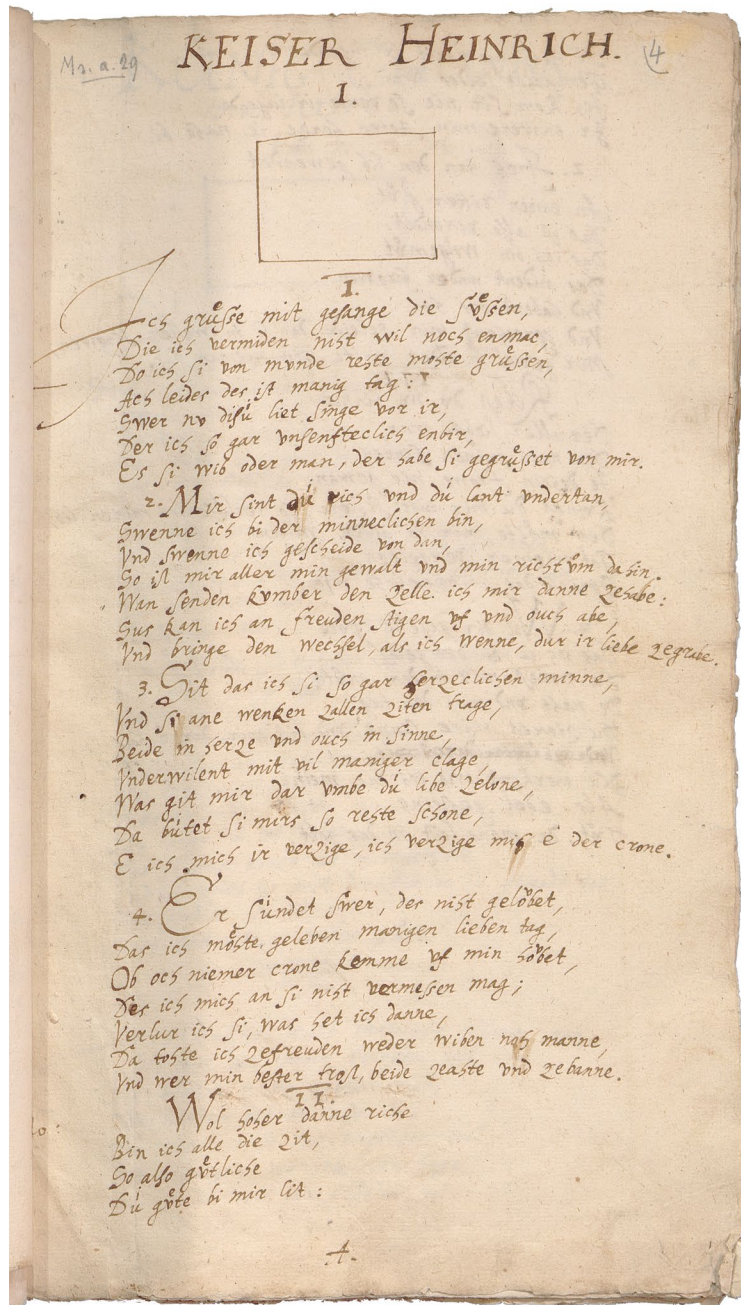 Ms. a. 29
KEISER HEINRICH. 4
I.
I.
Ich gruͤsse mit gesange die suͤssen,
Die ich vermiden niht wil noch enmac,
Do ich si von mvnde rehte mohte gruͤssen,
Ach leides des ist manig tag:
Swer nv disú liet singe vor ir,
Der ich so gar vnsenfteclich enbir,
Es si wib oder man, der habe si gegruͤsset von mir.
2. Mir sint dú rich vnd dú lant vndertan,
Swenne ich bi der minneclichen bin,
Vnd swenne ich gescheide von dan,
So ist mir aller min gewalt vnd min richtvͦm dahin.
Wan senden kvmber den zelle ich mir danne zehabe:
Sus kan ich an freuden stigen vf vnd ouch abe,
Vnd bringe den wechsel, als ich wenne, dur ir liebe zegrabe.
3. Sit das ich si so gar herzeclichen minne,
Vnd si ane wenken zallen ziten trage,
Beide in herze vnd ouch in sinne,
Vnderwilent mit vil maniger clage,
Was git mir dar vmbe dú libe zelone,
Da bútet si mirs so rehte schone,
E ich mich ir verzige, ich verzige mih e der crone.
4. Er súndet swer, des niht geloͮbet,
Das ich moͤhte geleben manigen lieben tag,
Ob och niemer crone kemme vf min hoͮbet,
Des ich mich an si niht vermessen mag;
Verlur ich si, was het ich danne,
Da tohte ich zefreuden weder wiben noh manne,
Vnd wer min bester trost, beide zeahte vnd zebanne.
II.
Wol hoher danne riche
Bin ich alle die zit,
So also guͤtliche
Dú guͤte bi mir lit:
4.